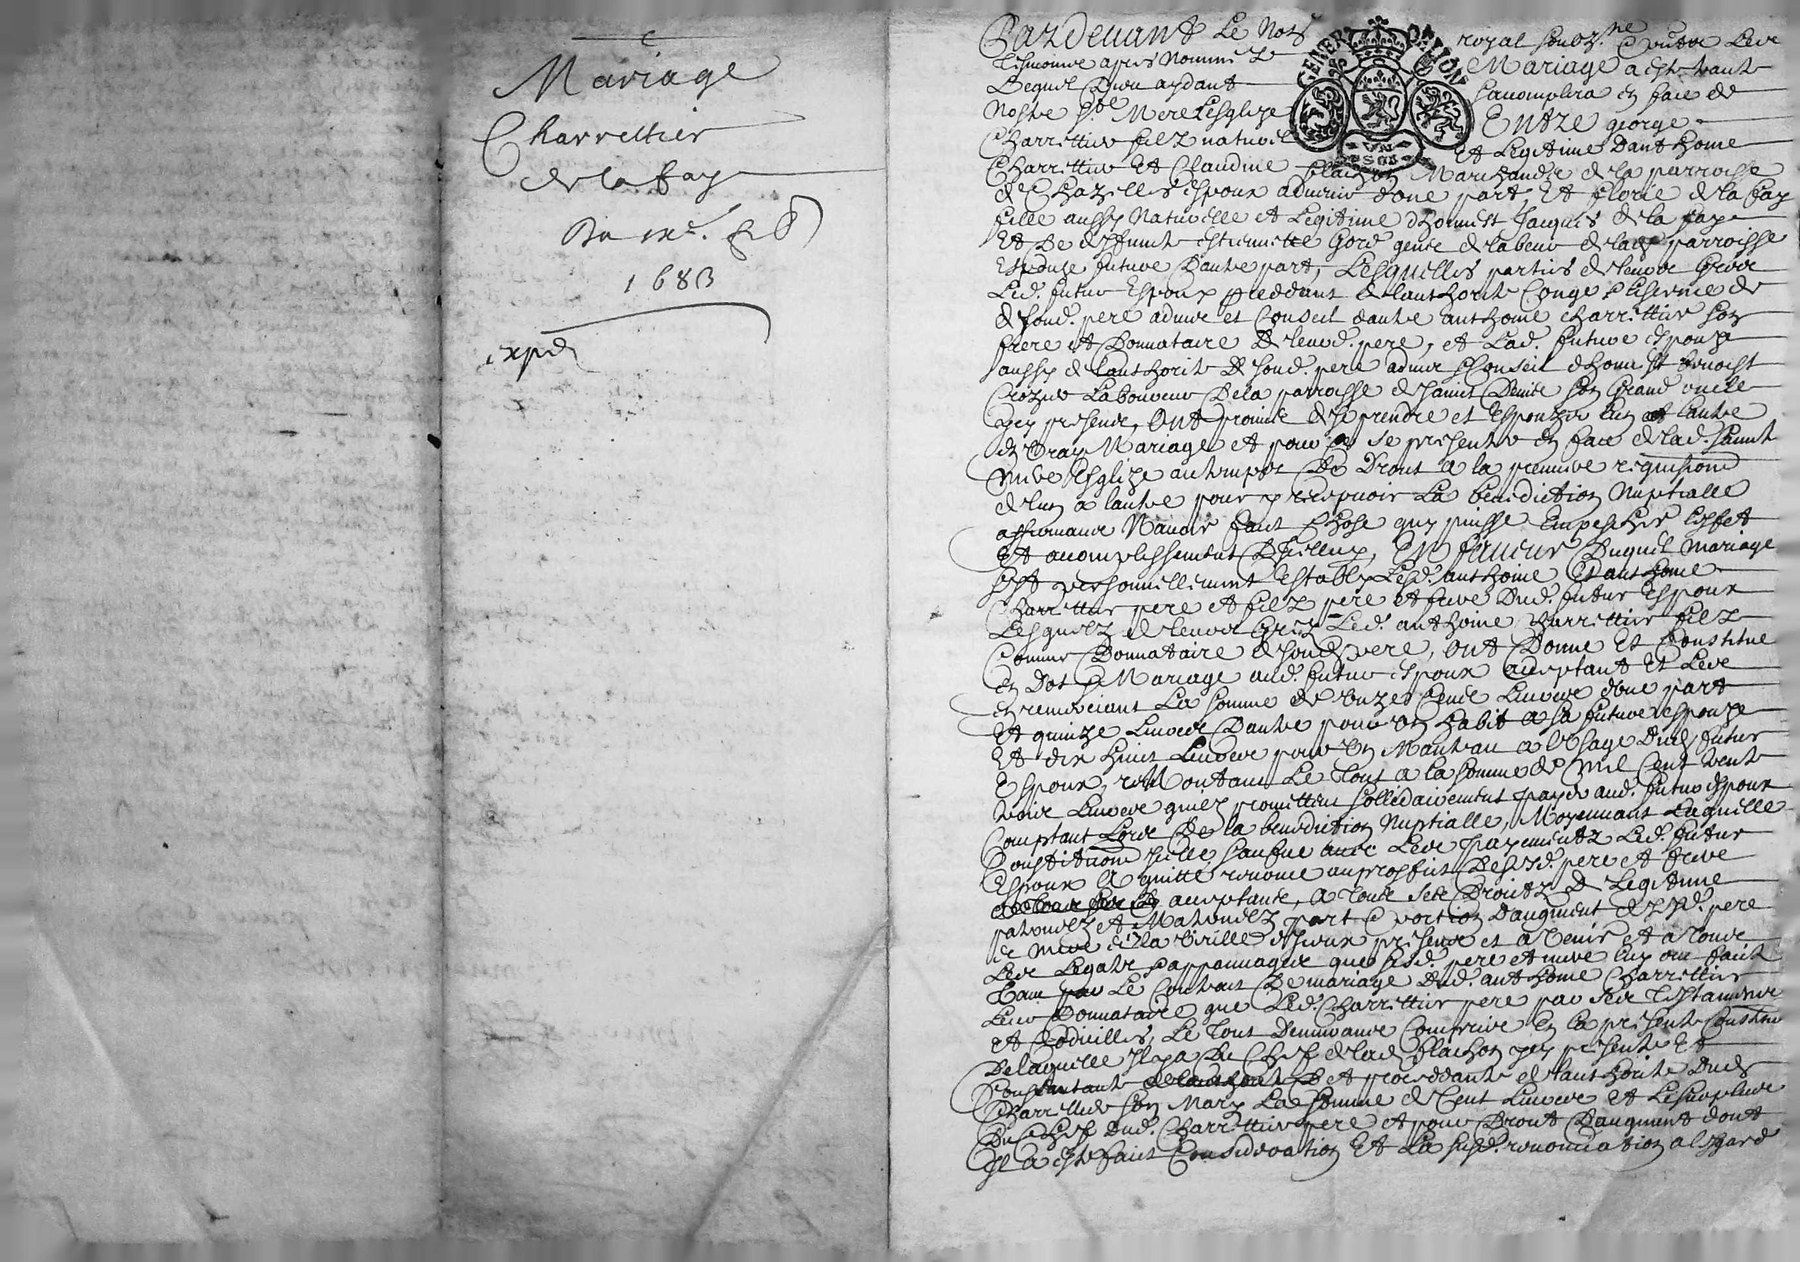 Mariage
Charrettier
de la fay
1683
expd
GENER D LYON
Pardevant Le Nor
royal soubz.ne & present Les
tesmoings apres Nommes Le
Mariage a este traité
Lequel Dieu aydant
saccomplira en face de
Nostre ste Mere Lesglize
Entre george
Charrettier filz naturel
et Legitime Danthoine
Charrettier Et Claudine Flachon Marchandz de la parroisse
de Chazelles espoux advenir dune part, Et florie de la fay
fille aussy Naturelle et Legitime dhonnest Jacques de la faye
Et De deffuncte estiennette Gord gents de labeur de lad. parroisse
Espouze future Dautre part, Lesquelles parties de leur Gré
Led. futur Espoux proceddant de lauthorité Congé Licence de
de sond. pere advis et Conseil dautre anthoine charrettier son
frere et Donnataire de leurd. pere, et Lad. future espouze
aussy de lauthorité de sond. pere advis & Conseil dhonnest benoist
Crozier Laboureur De la parroisse de saint Denis son Grand oncle
icy present, Ont promis de se prendre et Espouzer lun et lautre
en vray Mariage et pour ce se presenter en face de lad. sainte
mere Esglize au temps De Droit a la premiere requisition
de lun a lautre pour y recepvoir La benediction Nuptialle
affirmant Navoir fait Chose quy puisse Empescher Leffet
Et accomplissement Dicelluy, En faveur Duquel Mariage
se sont personnellement establys Lesd. anthoine Et anthoine
Charrettier pere et filz pere et frere Dud. futur Espoux
Lesquelz de leur Gré Led. anthoine charrettier filz
Comme Donnataire de sond. pere, ont Donné Et Constitué
en Dot & Mariage aud. futur espoux acceptant Et Les
en remerciant La somme de Unze Cents Livres dune part
Et quinze Livres Dautre pour un habit a sa future espouze
Et dix huict Livres pour Un Manteau a lUsage Dud. futur
Espoux, revenant Le Tout a la somme de Mil Cent trente
trois Livres quilz promettent sollidairement payer aud. futur espoux
Comptant Lors De la benediction Nuptialle, Moyennant Laquelle
Constitution Icelle saufve avec Les payements Led. futur
Espoux a quitté renoncé au proffit Desd. pere et frere
acceptants, a Tous ses Droitz De Legitime
paternelz et Maternelz part & portion Daugment de sesd. pere
& mere de la virille diceux presents et a venir et a tous
Les Legats & appannages que sesd. pere et mere luy ont faits
Tant par Le Contrat De mariage Dud. anthoine Charrettier
Leur Donnataire que Led. Charrettier pere par ses Testaments
et Codicilles, Le Tout Demeurant Compris En la presente Constitution
De laquelle Il y a Du Chef de lad. Flachon icy presente Et
Constituante et proceddante de lauthorité Dud.
Charrettier son Mary La Somme de Cent Livres et Le surplus
Du Chef Dud. Charrettier pere et pour Droit Daugment dont
Il a este fait Consideration Et La susd. renonciation a lesgard